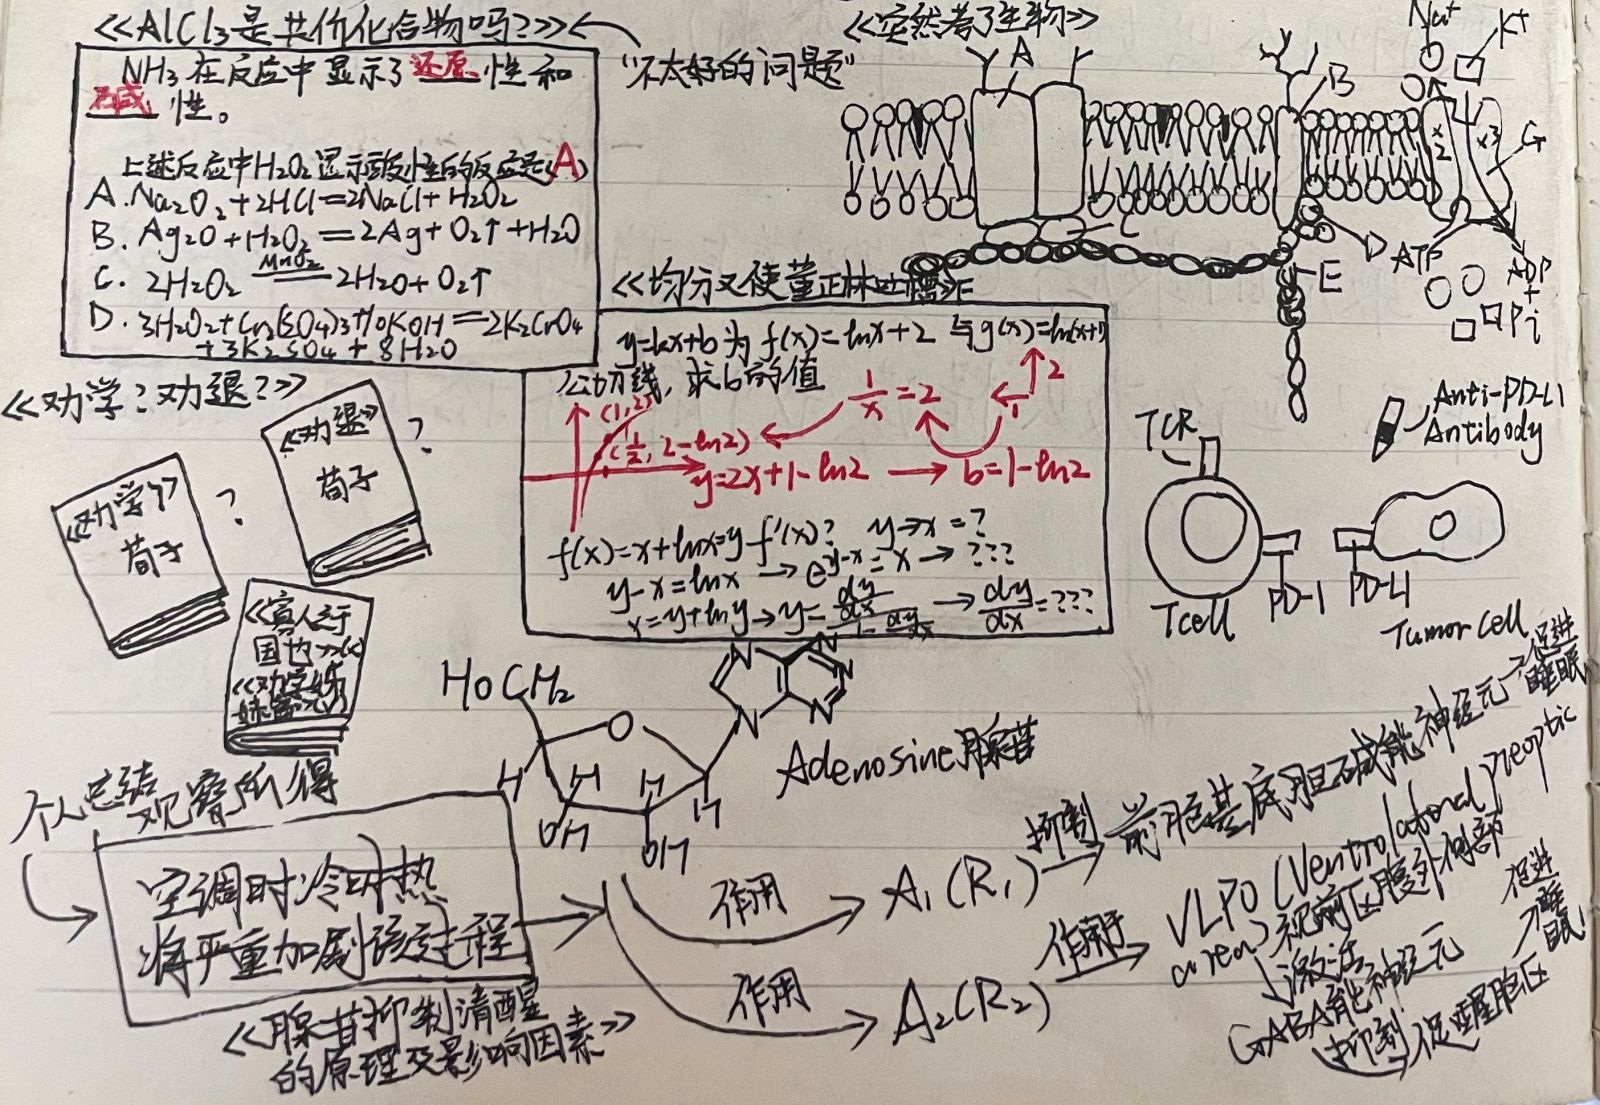 《AlCl3是共价化合物吗?》
"不太好的问题"
NH3在反应中显示了还原性和
碱性。
上述反应中H2O2显示酸性的反应是(A)
A. Na2O2+2HCl=2NaCl+H2O2
B. Ag2O+H2O2=2Ag+O2↑+H2O
C. 2H2O2 =MnO2= 2H2O+O2↑
D. 3H2O2+Cr2(SO4)3+10KOH=2K2CrO4
+3K2SO4+8H2O
《突然看了生物》
A
B
C
D
E
F
G
Na+
K+
x2
x3
ATP
ADP
+
Pi
《均分又使董正林吐槽》
y=kx+b为f(x)=lnx+2与g(x)=ln(x+1)
公切线,求b的值
(1,2)
(1/2, 2-ln2)
1/x=2
2
1
y=2x+1-ln2 → b=1-ln2
f(x)=x+lnx=y f'(x)? y→x=?
y-x=lnx → e^(y-x)=x → ???
x=y+lny → y= (dy/dx)/(1-dy/dx) → dy/dx=???
《劝学?劝退?》
《劝退》
荀子
?
《劝学》
荀子
?
《寡人之于
国也》
TCR
T cell
PD-1
PD-L1
Tumor cell
Anti-PD-L1
Antibody
HOCH2
O
H
H
H
H
OH
OH
N
N
N
N
N
Adenosine腺苷
个人总结
观察所得
空调时冷时热
将严重加剧该过程
《腺苷抑制清醒
的原理及影响因素》
作用 A1(R1) 抑制 前脑基底胆碱能神经元→促进
睡眠
作用 A2(R2) 作用于 VLPO (Ventrolateral preoptic
area)视前区腹外侧部
↓激活
GABA能神经元
抑制 促醒脑区
促进
睡眠